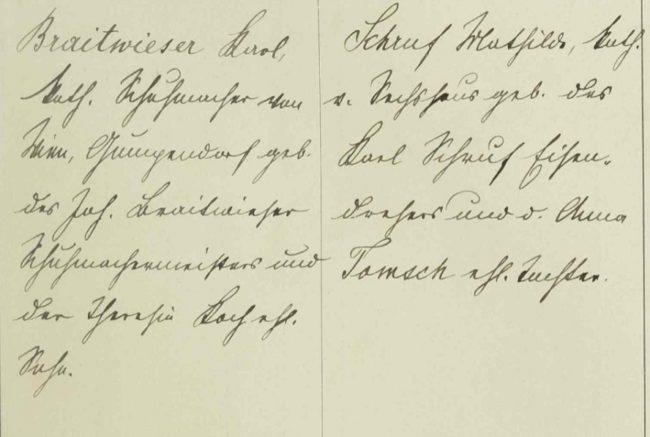 Braitwieser Karl,
kath. Schuhmacher von
Wien, Gumpendorf geb.
des Joh. Braitwieser
Schuhmachermeisters und
der Theresia Koch ehl.
Sohn.
Schruf Mathilde, kath.
v. Sechshaus geb. des
Karl Schruf Eisen-
drehers und d. Anna
Tomsch ehl. Tochter.